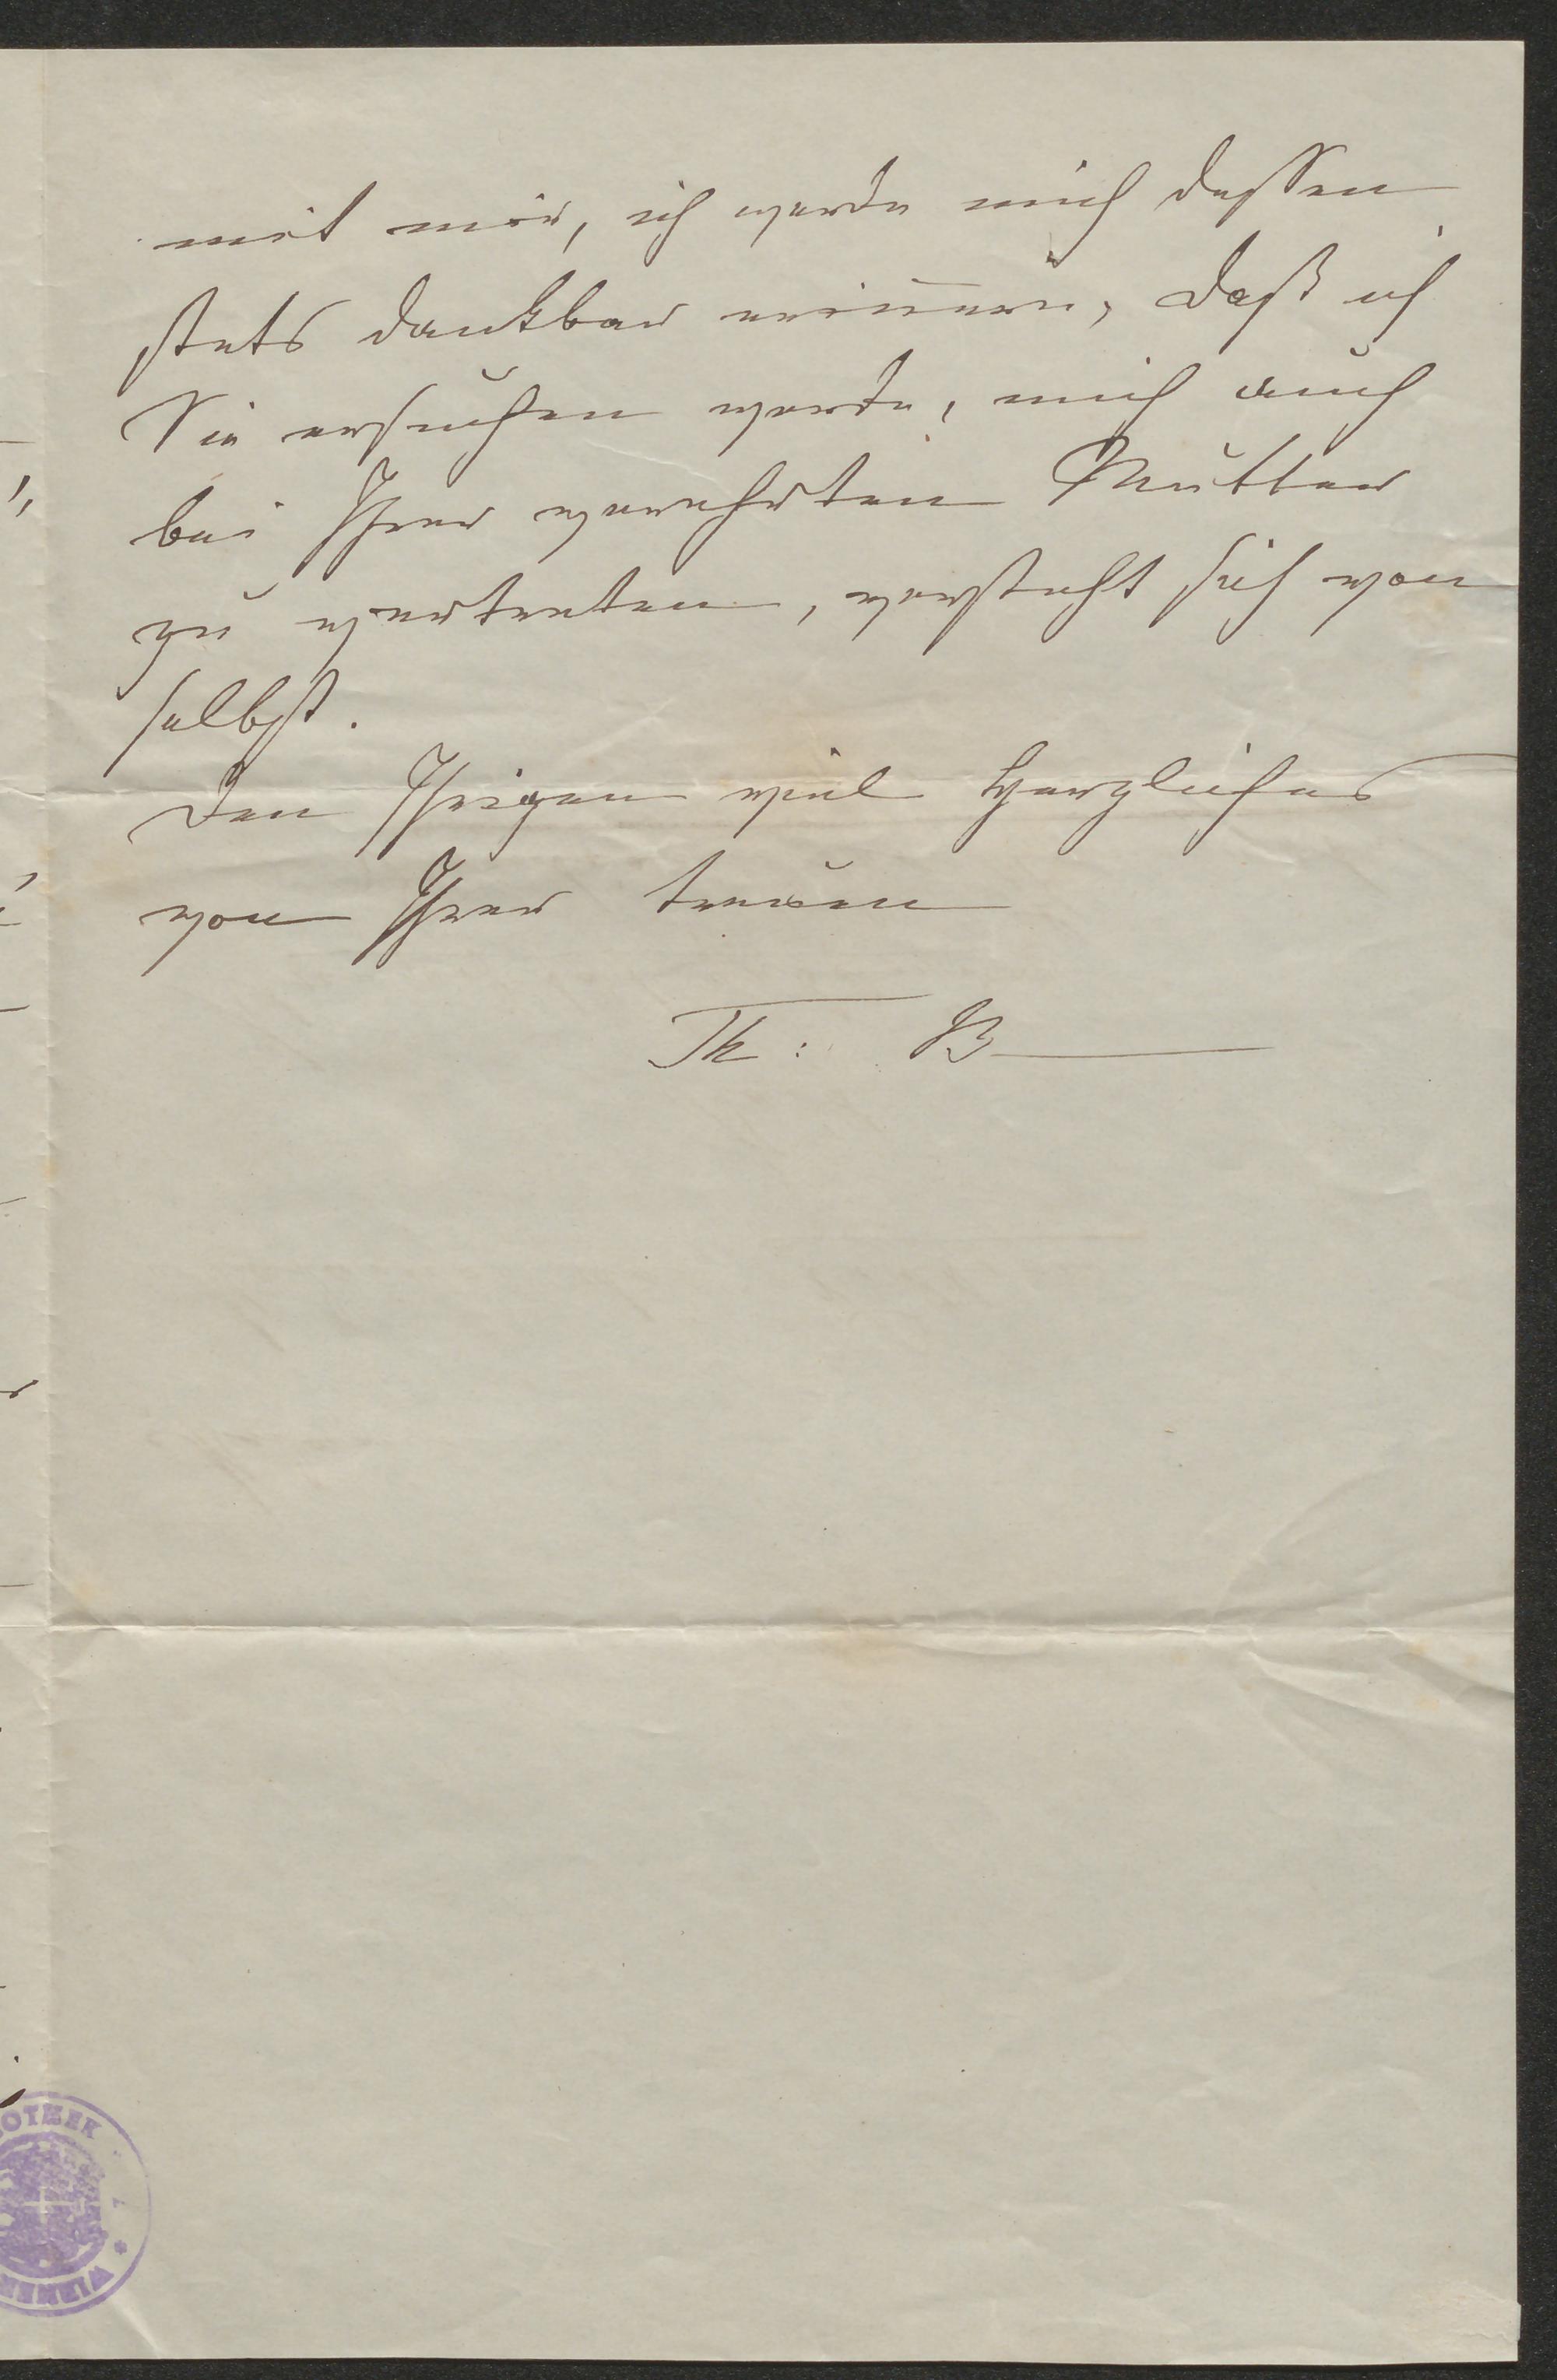 mit mir, ich werde mich dessen
stets dankbar erinnern, daß ich
Sie ersuchen werde, mich auch
bei Ihrer verehrten Mutter
zu vertreten, versteht sich von
selbst.
Den Ihrigen viel Herzliches
von Ihrer treuen
Th: B
OTHEK
WIENER